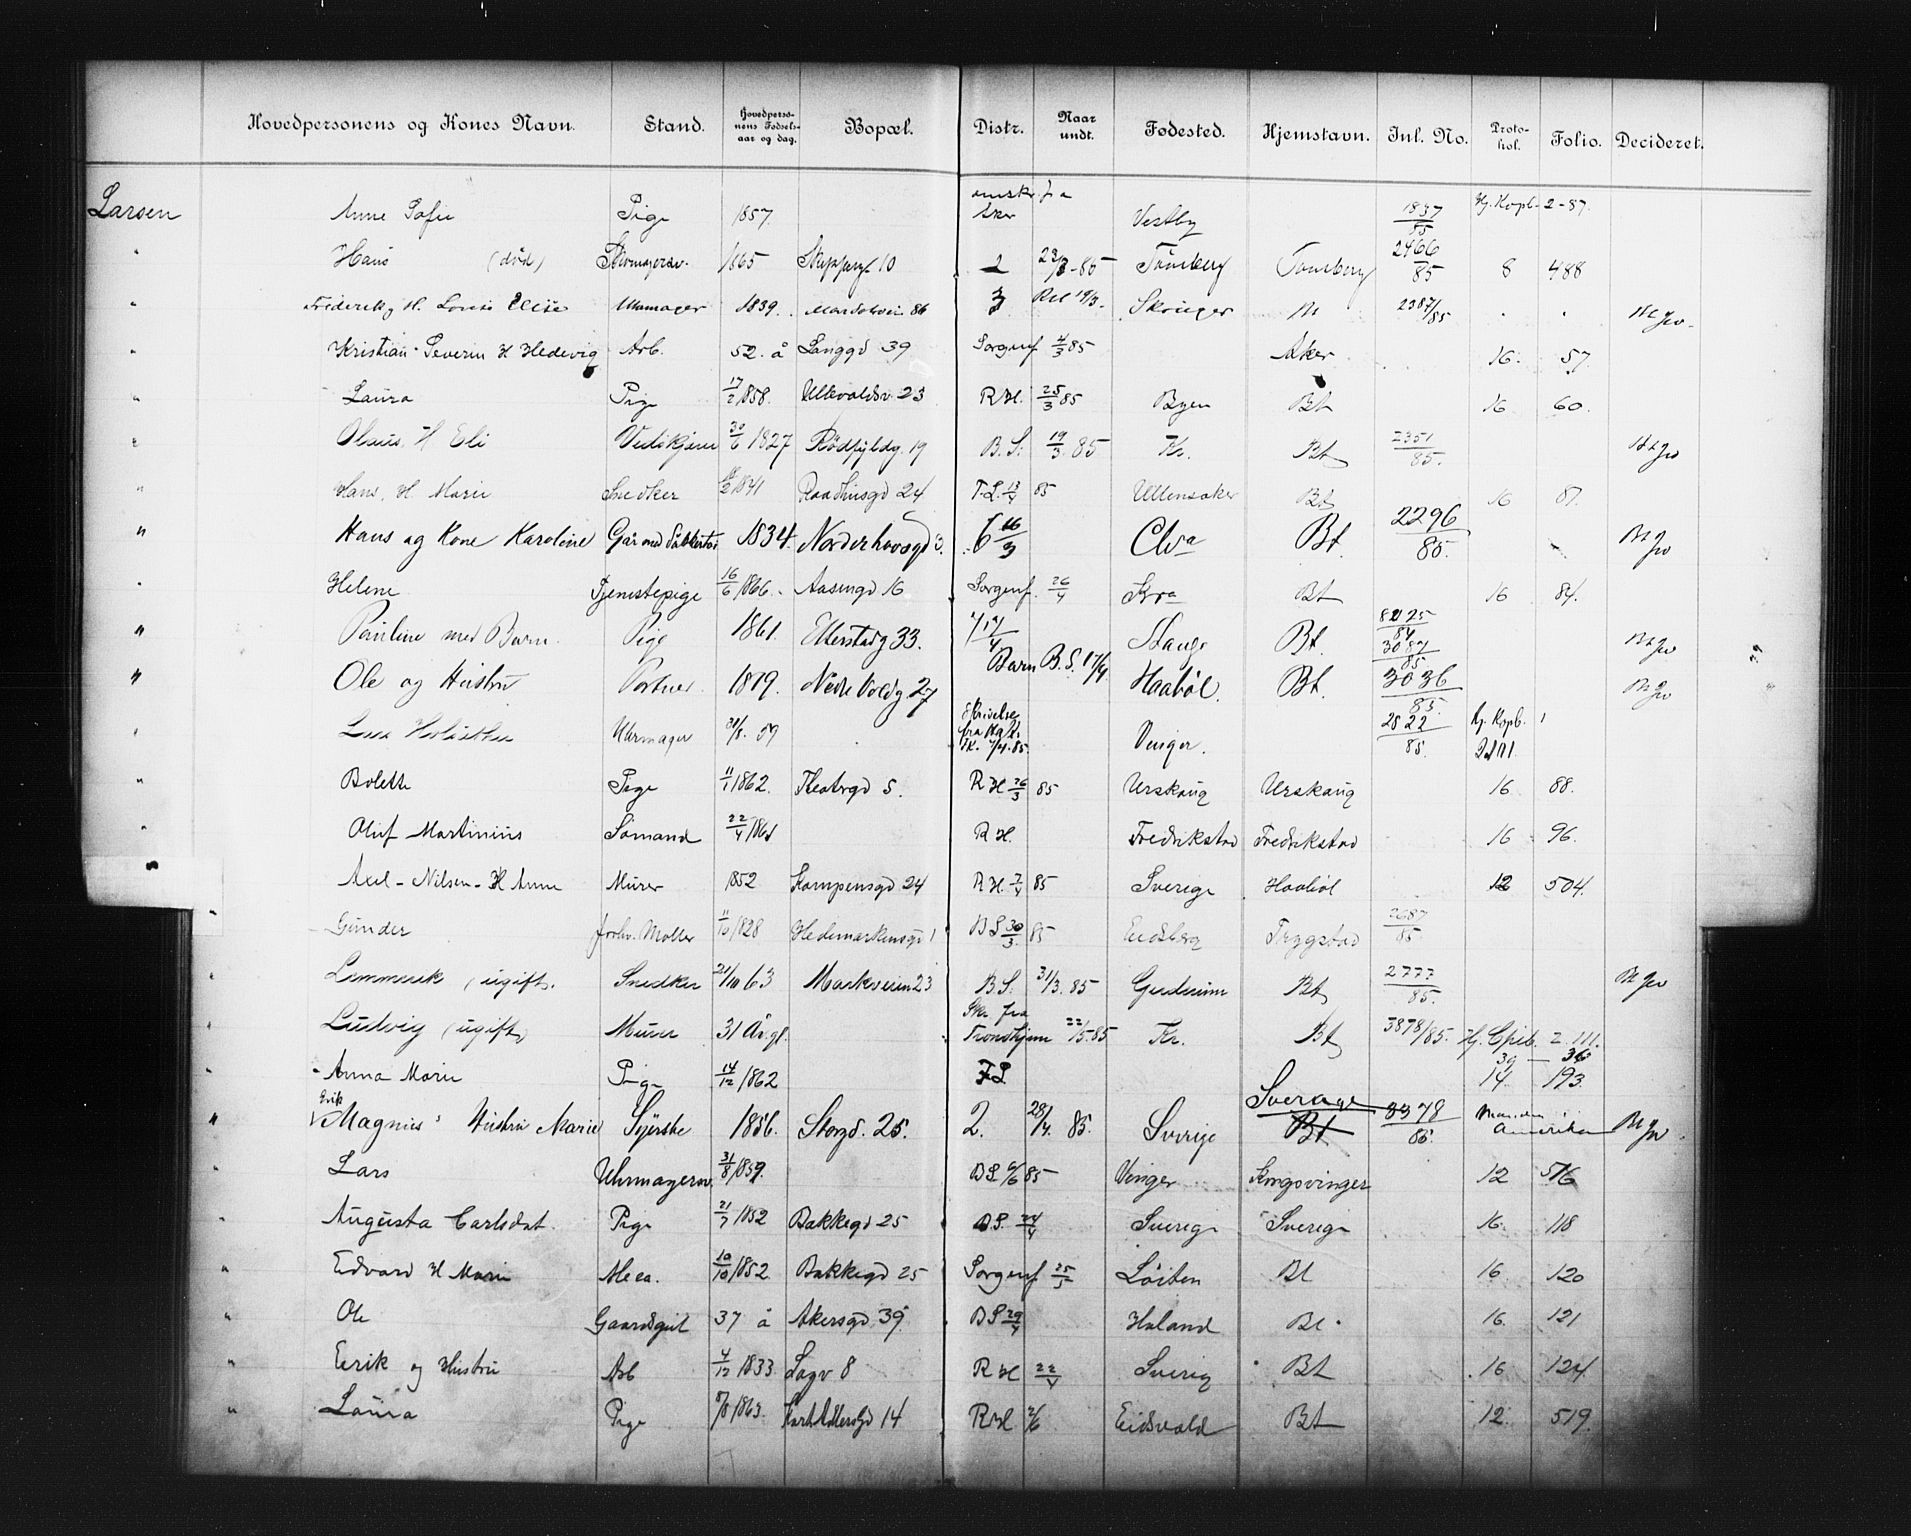 Hovedpersonens og Kones Navn. Stand. Hovedpersonens Fødselsaar og dag. Bopæl. Distr. Naar undt. Fødested. Hjemstavn. Inl. No. Protokol. Folio. Decideret.
Larsen Anne Sofie Pige 1857. anskr. fra Aker Vestby 1837/85 Hj. Kopb. 2-87.
" Hans (död) 1865 Skipperg 10 2 23/3-85 Tönsberg Tönsberg 2466/85 8 488
" Frederik, H. Lovise Elise Uhrmager 1839. 86 3 RH 19/3. Bt 2387/85
" Kristian Severin H Hedevig Arb. 52. å Langgd 39 Sorgenf 4/3 85 Aker 16. 57.
" Laura Pige 17/2 1858. Ullevoldsv. 23 R.H. 25/3 85 Byen Bt 16 60.
" Olaus, H Eli Vedskjærer 30/6 1827 Rödfyldg. 19 B.S. 19/3. 85 Kr. Bt 2351/85.
" Hans, H. Marie Snedker 1841 Raadhusgd 24 T.L. 13/4 85 Ullensaker Bt 16 87.
" Hans og Kone Karoline 1834. Norderhovsgd 3. 6 16/3 Elv Bt. 2296/85.
" Helene Tjenestepige 16/6 1866. Aasengd 16 Sorgenf. 26/4 Kra Bt 16 84.
" Pauline med Barn. Pige 1861. Etterstadg 33. 7 17/4 Stange Bt. 8225/84 3087/85
Barn B.S. 17/4
" Ole og Hustru Portner. 1819. Nedre Voldg 27 Haaböl. Bt. 3036/85.
" Uhrmager 31/8. 59 Skrivelse fra 7/4.85. Vinger. 2822/85 Hj. Kopb. 1
" Bolette Pige 11/1 1862. Theatergd 5. R H 26/3 85 Urskoug Urskoug 16 88.
" Oluf Martinius Sömand 22/4 1861 R H. Fredrikstad Fredrikstad 16 96.
" Axel-Nilsen-H Anne Murer 1852 Kampensgd 24 R H. 7/4 85 Sverige Haaböl 12 504.
" Gunder forhv. Möller 11/10 1828 Hedemarkensgd 1 B S 30/3. 85 Eidsberg Trygstad 2687/85.
" (ugift). Snedker 21/10 63 Markveien 23 B.S. 31/3. 85 Gjerdrum Bt 2777/85.
" Ludvig (ugift) Murer 31 År gl. Skr. fra Trondhjem 22/5-85 Kr. Bt 3878/85. Hj. Cpib. 2. 111.
39 — 36
" Anna Marie Pige 14/12 1862 F L 14. 193.
" Erik Magnus' Hustru Marie Syerske 1856. Storgd. 25. 2. 28/4. 85. Sverige Sverige Bt 3378/85. Manden i Amerika
" Lars Uhrmagersv. 31/8 1859. B S 6/6 85 Vinger Kongsvinger 12 516
" Augusta Carlsdat. Pige 21/7 1852 Bakkegd 25 B S. 24/4 Sverige Sverige 16. 118
" Edvard H Marie 10/10 1852 Bakkegd 25 Sorgenf 25/5 Löiten Bt 16. 120
" Ole Gaardsgut 37 å Akersgd 39 B S 29/4 Höland Bt. 16. 121
" Eerik og Hustru Arb 4/12 1833 Sagv 8 R H 22/4 Sverig Bt 16 124
" Laura Pige 1863. Kurt Adlersgd 14 R H 2/6 Eidsvold Bt 12. 519.